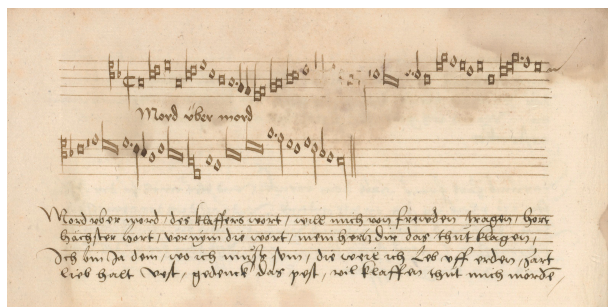 Mord über mord
Mord vber mord / des klaffers wort / will mich von frewden tragen / hort
höchster hort / vernym die wort / mein hertz dir das thut klagen /
Ich bin Ja dem / wo ich muß sein / die weil ich Leb vff erden / zart
lieb halt vest / gedenck das pest / vil klaffen thut mich mörde /